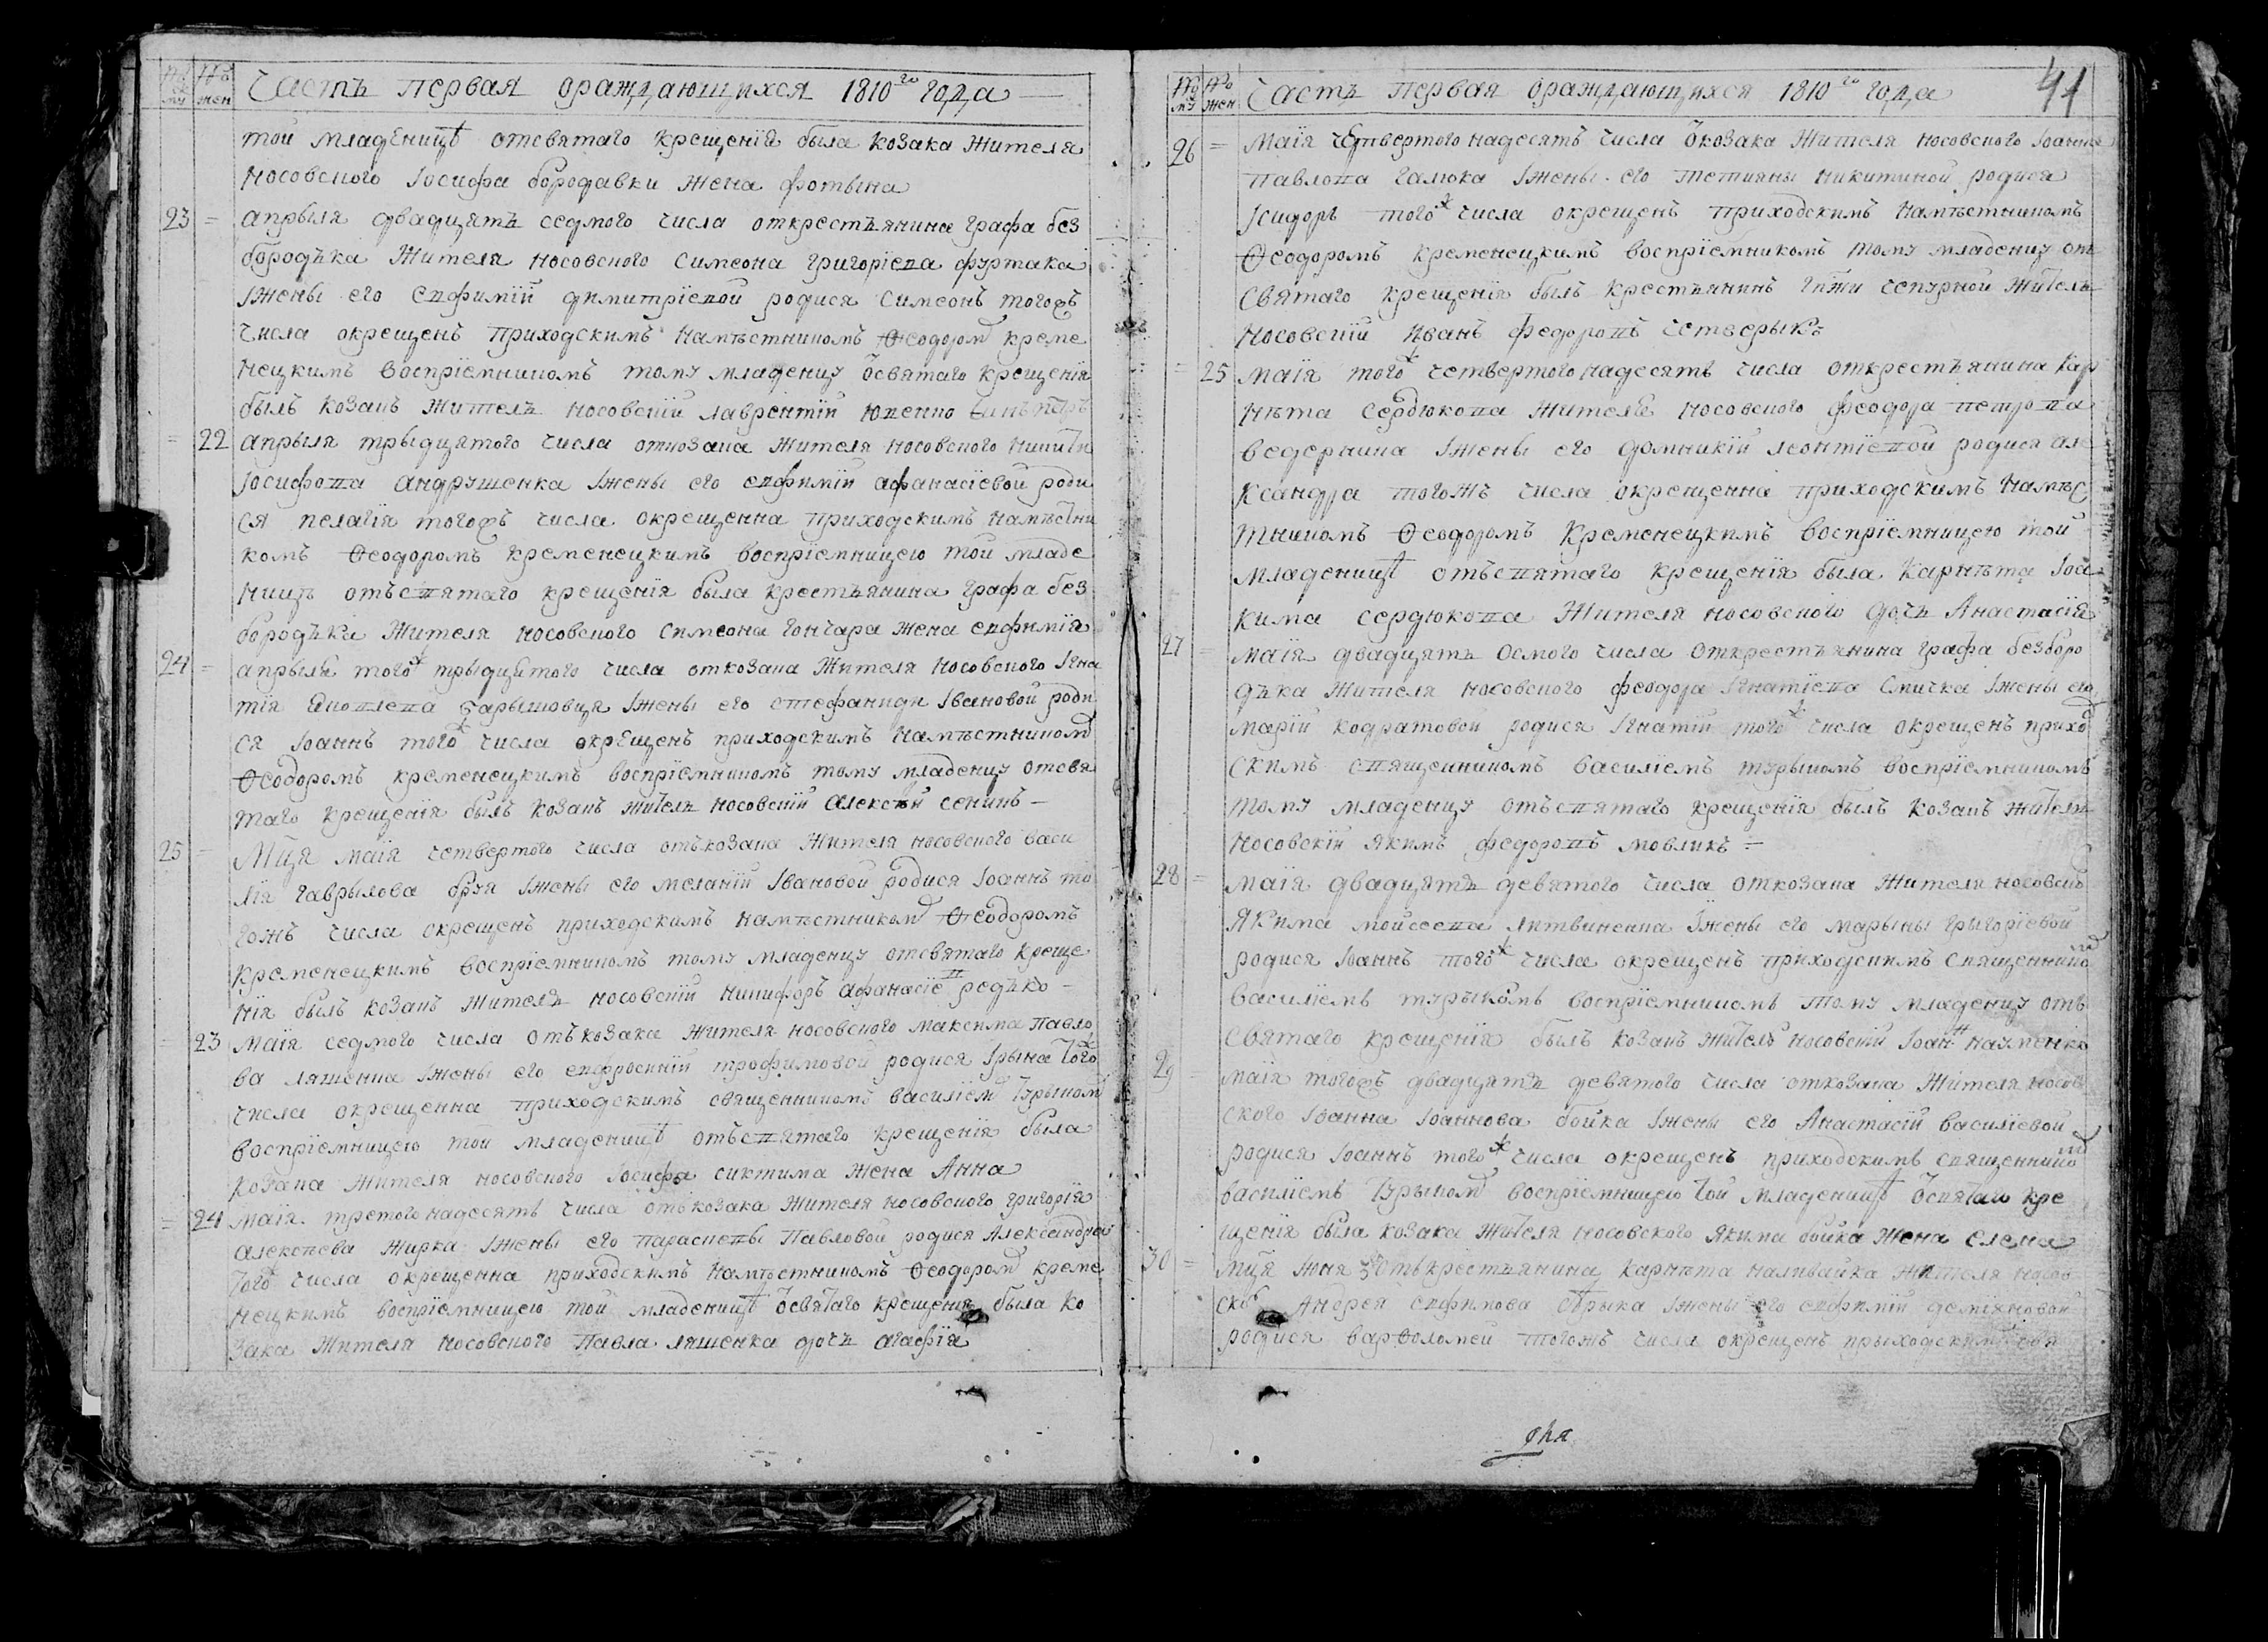 Часть первая ораждающихся 1810го года
той младеницѣ отсвятаго крещенія была козака жителя
носовского Іосифа бородавки жена фотына
23 = апрыля двадцять седмого числа открестъянина графа без
бородъка жителя носовского симеона григоріева фуртака
Iжены его евфиміи димитріевой родися симеонъ тогожъ
числа окрещенъ приходскимъ намѣстникомъ Ѳеодором креме
нецкимъ воспріемникомъ тому младенцу ѿсвятаго крещенія
былъ козакъ житель носовскій лаврентій
= 22 апрыля трыдцятого числа откозака жителя носовского никиты
Іосифова андрушенка Iжены его евфиміи афанасіевой роди
ся пелагія тогожъ числа окрещенна приходскимъ намѣстни
комъ Ѳеодоромъ кременецкимъ воспріемницею той младе
ницѣ отъсвятаго крещенія была крестъянина графа без
бородъка жителя носовского симеона гончара жена евфимія
24 = апрыля тогож трыдцятого числа откозака жителя носовского Iгна
тія Iжены его стефаниди Iвановой роди
ся Iоаннъ тогож числа окрещенъ приходскимъ намѣстником
Ѳеодоромъ кременецкимъ воспріемникомъ тому младенцу отсвя
таго крещенія былъ козакъ житель носовскій алексѣй сенинъ
25 = Мця маія четвертого числа отъкозака жителя носовского васи
лія гаврылова Iжены его меланіи Iвановой родися Iоаннъ то
гожъ числа окрещенъ приходскимъ намѣстником Ѳеодоромъ
кременецкимъ воспріемникомъ тому младенцу отсвятаго креще
нія былъ козакъ житель носовскій никифоръ афанасіев редъко
= 23 маія седмого числа отъкозака жителя носовского максима павло
ва ляшенка Iжены его евфросиніи трофимовой родися Iрына тогож
числа окрещенна приходскимъ священникомъ василіем турыком
воспріемницею той младеницѣ отъсвятаго крещенія была
козака жителя носовского Iосифа жена Анна
= 24 маія третого надесять числа отъкозака жителя носовского григорія
алексѣева жирка Iжены его параскевы Павловой родися Александра
тогож числа окрещенна приходскимъ намѣстникомъ Ѳеодором креме
нецкимъ воспріемницею той младеницѣ ѿсвятаго крещения была ко
зака жителя носовского Павла ляшенка дочь агафія
Часть первая ораждающихся 1810го года 41
26 = маія четвертого надесять числа ѿкозака жителя носовского Iоанна
павлова галюка Iжены его тетияны никитиной родися
Iсидоръ тогож числа окрещенъ приходскимъ намѣстникомъ
Ѳеодоромъ кременецкимъ воспріемникомъ тому младенцу от
святаго крещенія былъ крестъянинъ житель
носовскій Iванъ федоровъ четверыкъ
= 25 маія тогож четвертого надесять числа открестъянина кар
нѣта сердюкова жителя носовского феодора петрова
ведерника Iжены его домникіи леонтіевой родися але
ксандра тогожъ числа окрещенна приходскимъ намѣс
тникомъ Ѳеодоромъ кременецкимъ воспріемницею той
младеницѣ отъсвятаго крещенія была карнѣта Iоа
кима сердюкова жителя носовского дочь Анастасія
27 = маія двадцять осмого числа открестъянина графа безборо
дъка жителя носовского феодора Iгнатіева спичка Iжены его
маріи кодратовой родися Iгнатій тогож числа окрещенъ приход
скимъ священникомъ василіемъ турыкомъ воспріемникомъ
тому младенцу отъсвятаго крещенія былъ козакъ житель
носовскій якимъ федоровъ мовликъ =
28 = маія двадцять девятого числа откозака жителя носовск
Якима мойсеева литвиненка Iжены его марыны григоріевой
родися Iоаннъ тогож числа окрещенъ приходскимъ священником
василіемъ турыкомъ воспріемникомъ тому младенцу отъ
святаго крещенія былъ козакъ житель носовскій Iоанн науменко
29 = маія тогожъ двадцять девятого числа откозака жителя носов
ского Iоанна Iоаннова бойка Iжены его Анастасіи василіевой
родися Iоаннъ тогож числа окрещенъ приходскимъ священником
василіемъ турыком воспріемницею той младеницѣ ѿсвятаго кре
щенія была козака жителя носовского якима бойка жена елена
30 = мця июня 3 отъкрестъянина карнѣта наливайка жителя носов
ског Андрея евфимова Iжены его евфиміи демяновой
родися варѳоломей тогожъ числа окрещенъ прыходскимъ свя